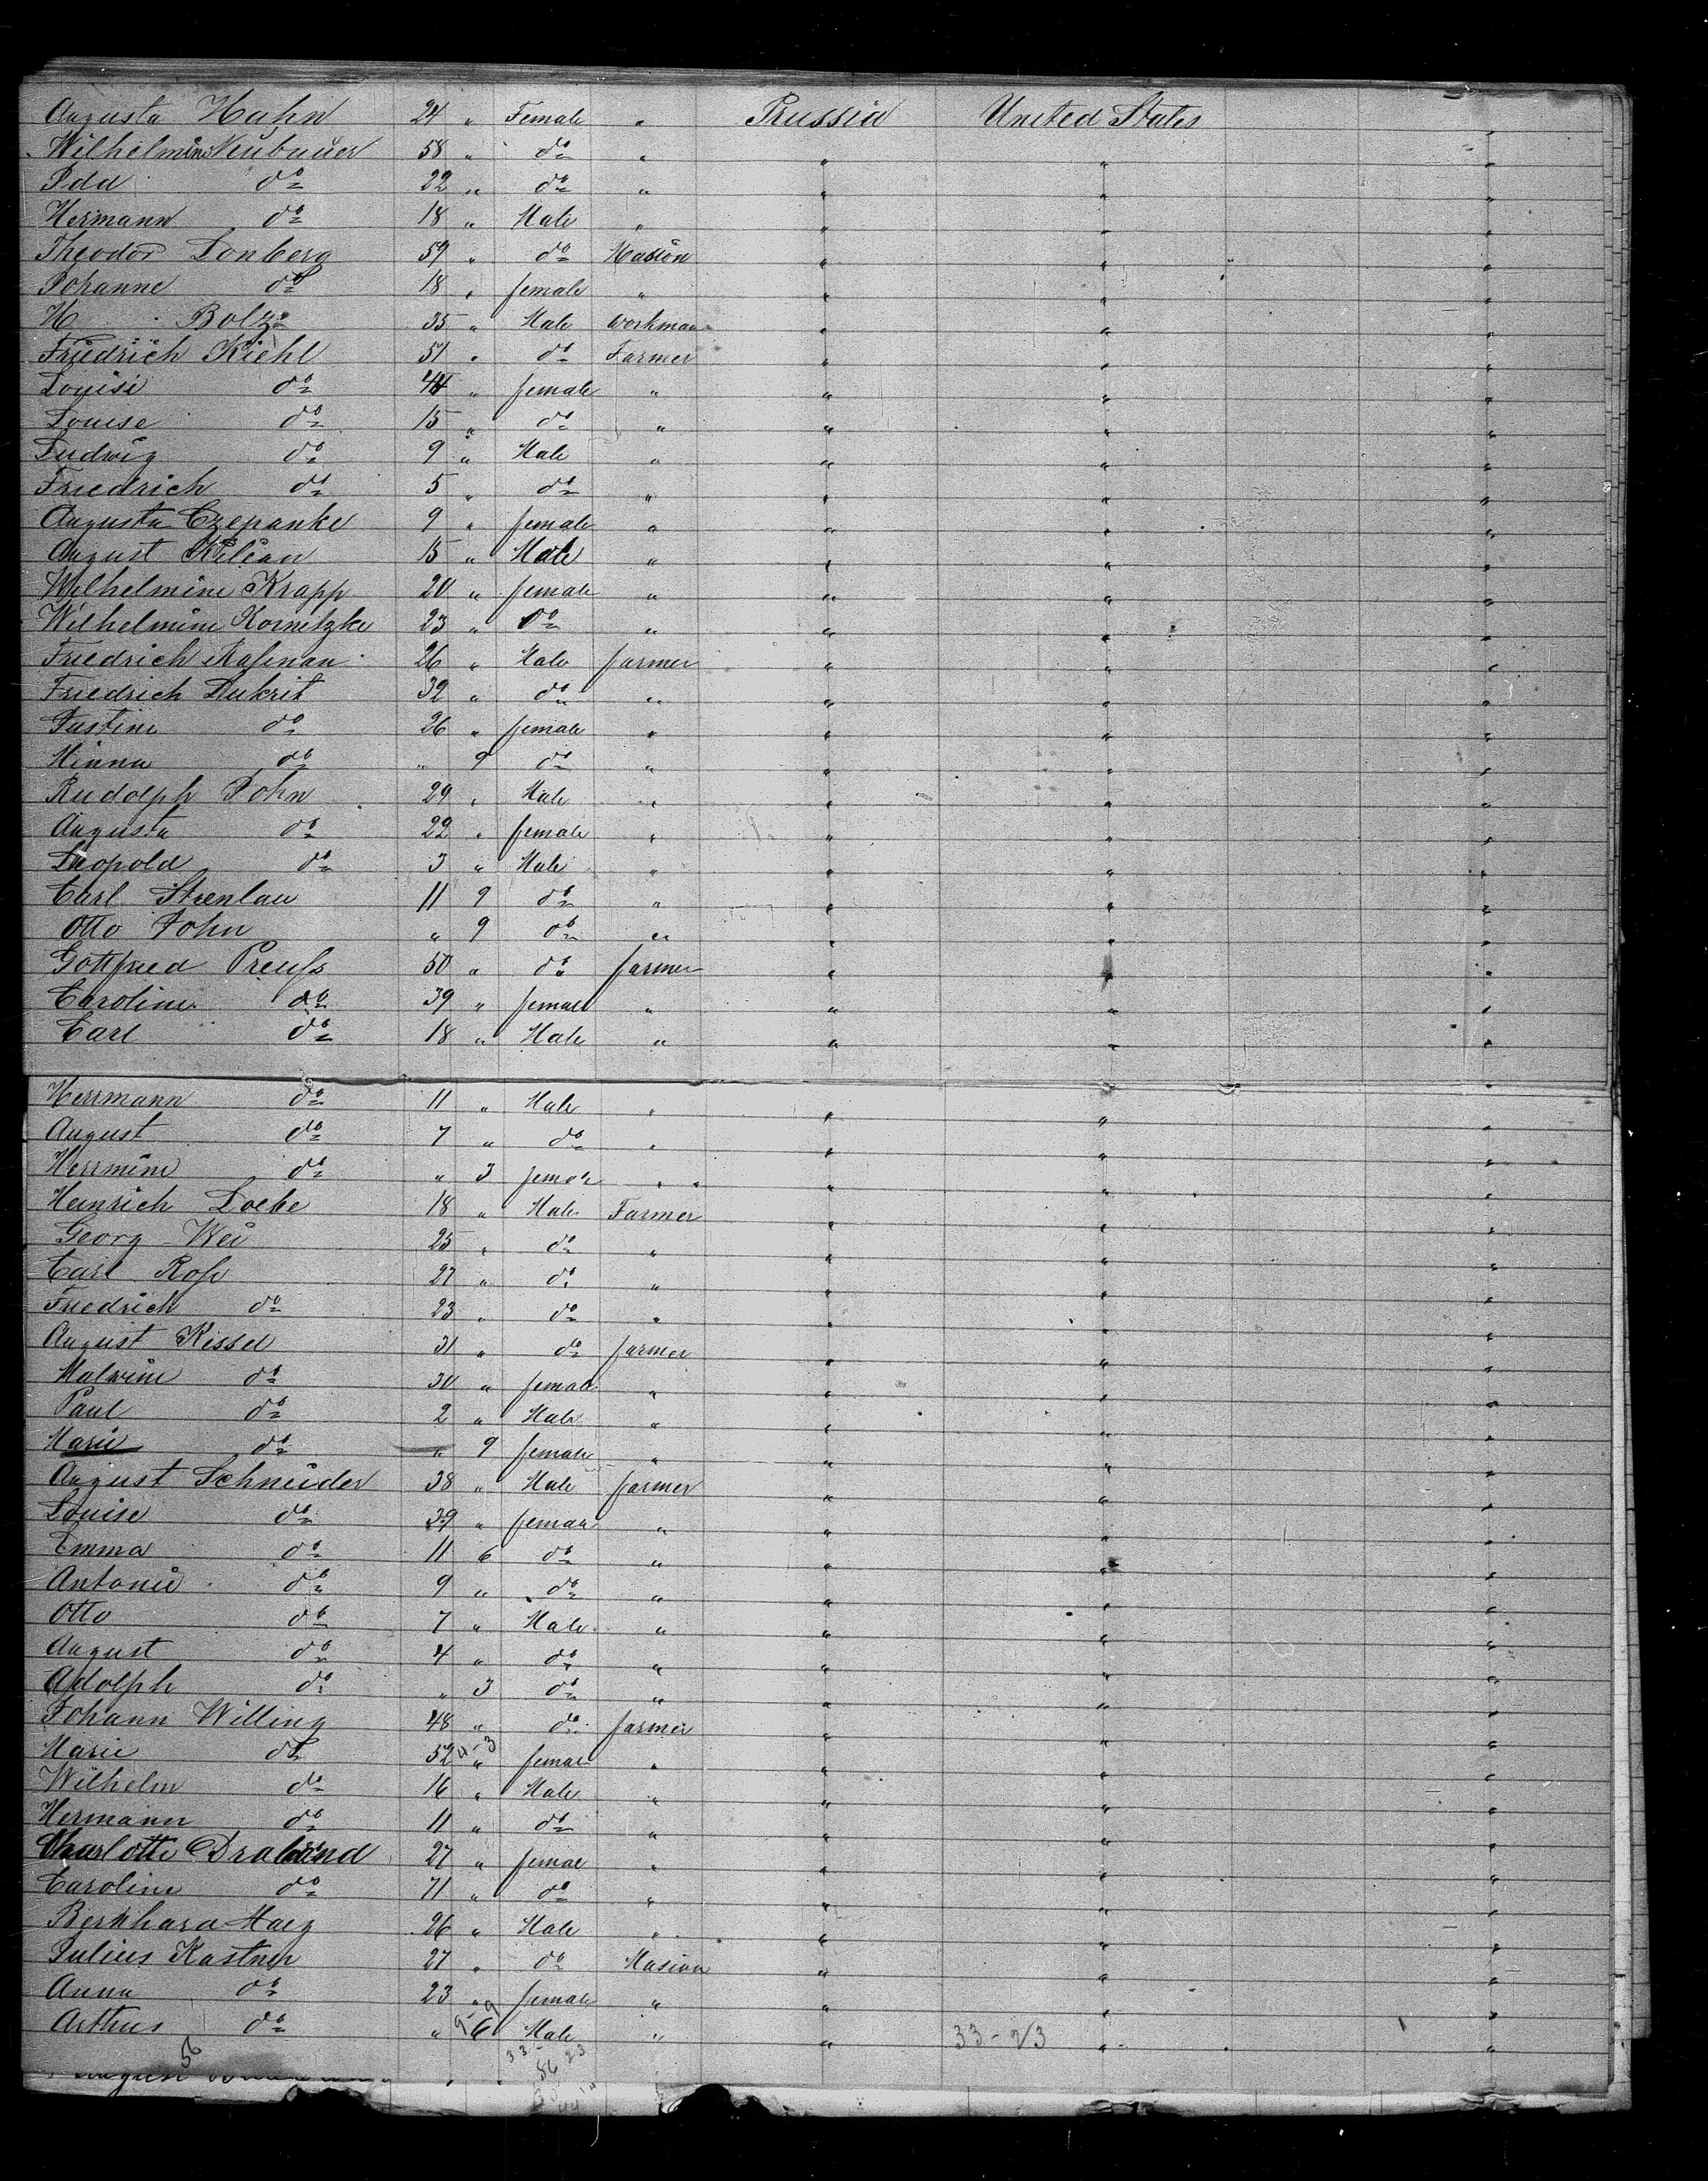 Augusta Hahn 24 " Female " Prussia United States "
Wilhelmine Neubauer 58 " do " " " "
Ida do 22 " do " " " "
Hermann do 18 " Male " " " "
Theodor Lonberg 59 " do Mason " " "
Johanne do 18 " female " " " "
H Bolz 35 " Male Workman " " "
Friedrich Kiehl 51 " do Farmer " " "
Louise do 44 " female " " " "
Louise do 15 " do " " " "
Ludwig do 9 " Male " " " "
Friedrich do 5 " do " " " "
Augusta Czepanke 9 " female " " " "
August Kilian 15 " Male " " " "
Wilhelmine Krapp 20 " female " " " "
Wilhelmine Kornetzke 23 " do " " " "
Friedrich 26 " Male farmer " " "
Friedrich Dukrit 32 " do " " " "
Justine do 26 " female " " " "
Minna do " 9 do " " " "
Rudolph John 29 " Male " " " "
Augusta do 22 " female " " " "
Leopold do 3 " Male " " " "
Carl Strenlau 11 9 do " " " "
Otto John " 9 do " " " "
Gottfried Preuſs 50 " do farmer " " "
Caroline do 39 " female " " " "
Carl do 18 " Male " " " "
Herrmann do 11 " Male " " " "
August do 7 " do " " " "
Hermine do " 3 female " " " "
Heinrich Loebe 18 " Male Farmer " " "
Georg Wei 25 " do " " " "
Carl Roſe 27 " do " " " "
Friedrich do 23 " do " " " "
August Kissel 31 " do farmer " " "
Malwine do 30 " female " " " "
Paul do 2 " Male " " " "
Marie do " 9 female " " " "
August Schneider 38 " Male farmer " " "
Louise do 39 " female " " " "
Emma do 11 6 do " " " "
Antonie do 9 " do " " " "
Otto do 7 " Male " " " "
August do 4 " do " " " "
Adolph do " 3 do " " " "
Johann Willing 48 " do farmer " " "
Marie do 52 " female " " " "
Wilhelm do 16 " Male " " " "
Hermann do 11 " do " " " "
Charlotte 27 " female " " " "
Caroline do 71 " do " " " "
Bernhard Maeg 26 " Male " " " "
Julius Kastner 27 " do Mason " " "
Anna do 23 " female " " " "
Arthur do " 6 Male " " 33-23 " "
56
33 - 23
56